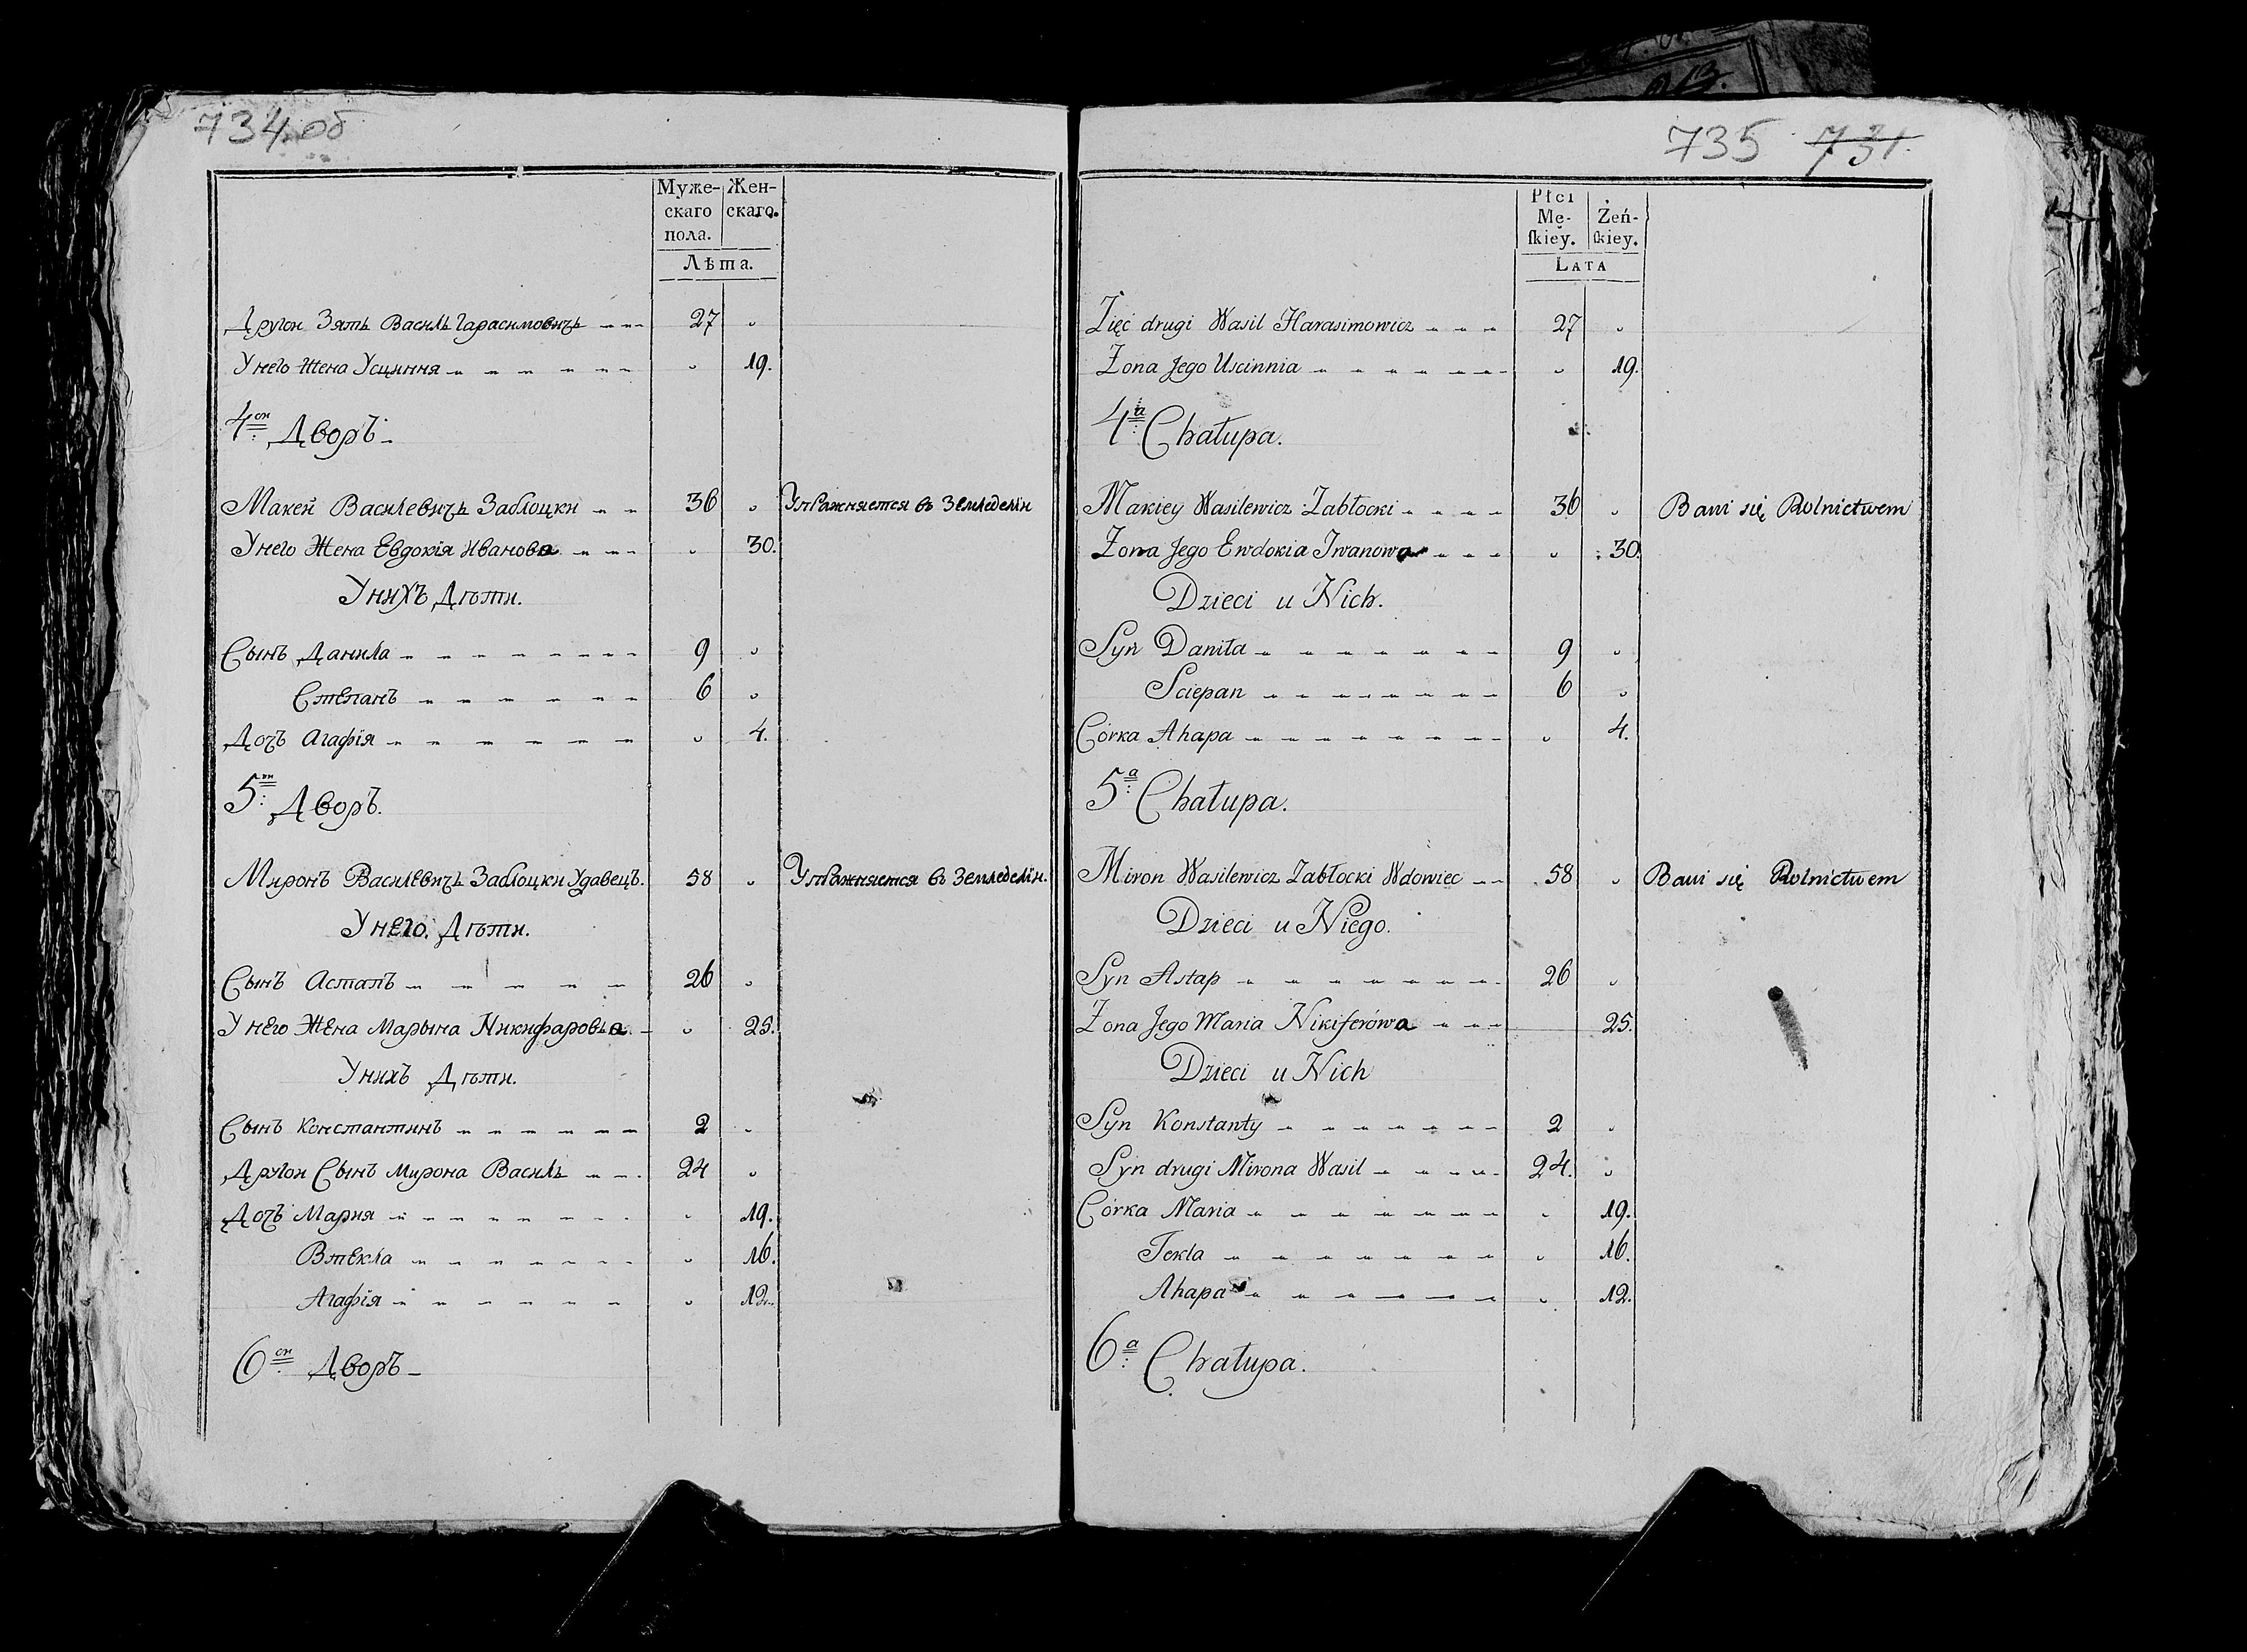 734 об
Муже- Жен-
скаго скаго.
пола.
Лѣта.
Другой Зять Василь Гарасимовичь 27
У него Жена Усциння 19.
4ой Дворъ
Макей Василевичь Заблоцки 36 Упражняется въ Земледелïи
У него Жена Евдокïя Иванова 30.
У нихъ Дѣти.
Сынъ Данила 9
Степанъ 6
Дочь Агафïя 4.
5ой Дворъ.
Миронъ Василевичь Заблоцки Удавецъ. 58 Упражняется въ Земледелïи.
У него. Дѣти.
Сынъ Астапъ 26
У него Жена Марына Никифарова 25.
У нихъ Дѣти.
Сынъ Константинъ 2
Другой Сынъ Мирона Василь 24
Дочь Мария 19.
Втекла 16.
Агафïя 12.
6ой Дворъ
735 731.
Płci
Mę- Żeń-
ſkiey. ſkiey.
LATA
Zięć drugi Wasil Harasimowicz 27
Żona Jego Uscinnia 19.
4a Chałupa.
Makiey Wasilewicz Zabłocki 36 Bawi się Rolnictwem
Żona Jego Ewdokia Iwanowa 30.
Dzieci u Nich.
Syn Daniła 9
Sciepan 6
Córka Ahapa 4.
5a Chałupa.
Miron Wasilewicz Zabłocki Wdowiec 58 Bawi się Rolnictwem
Dzieci u Niego.
Syn Astap 26
Żona Jego Maria Nikiferówa 25.
Dzieci u Nich
Syn Konstanty 2
Syn drugi Mirona Wasil 24.
Córka Maria 19.
Tekla 16.
Ahapa 12.
6a Chałupa.